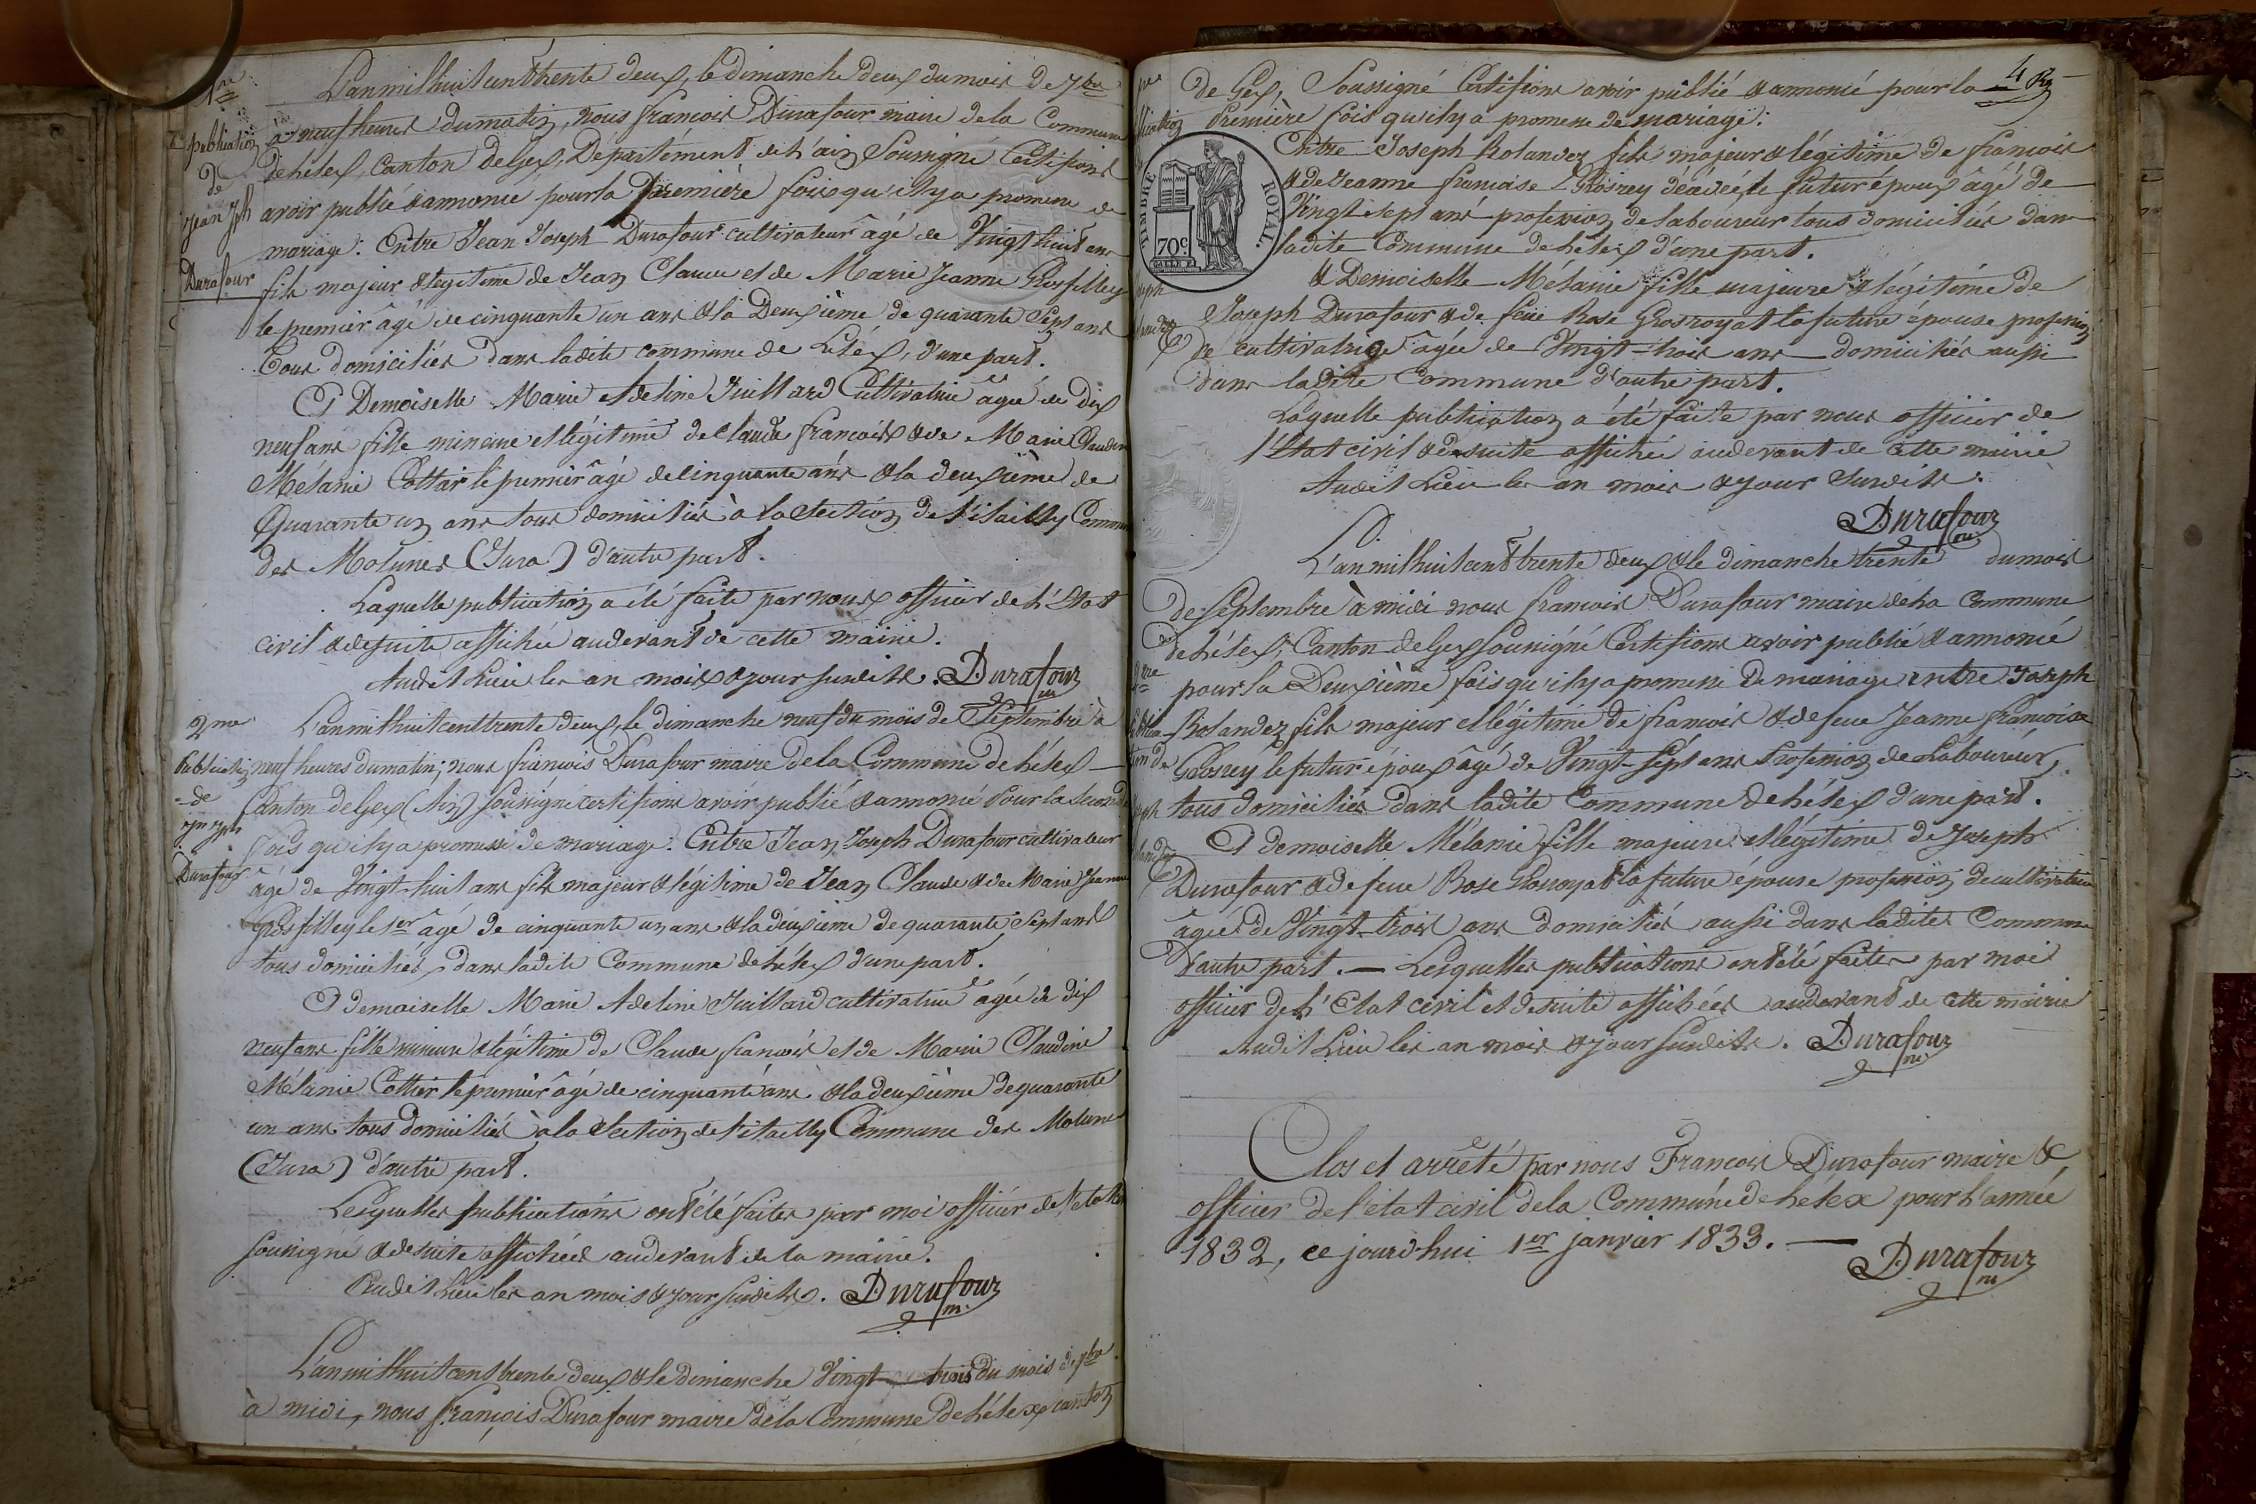 1re
publication
de
Jean Jph
Durafour
L'an mil huit cent trente deux, le dimanche deux du mois de 7bre
à neuf heures du matin, nous françois Durafour maire de la Commune
de Lélex, canton de Gex, Département de l'ain Soussigné Certifions
avoir publié & annoncé pour la Première fois qu'il y a promesse de
mariage: Entre Jean Joseph Durafour cultivateur âgé de Vingt huit ans
fils majeur & légitime de Jean Claude et de Marie Jeanne Grosfilley
le premier âgé de cinquante un ans & la Deuxième de quarante Sept ans
Tous domiciliés dans ladite commune de Lélex, d'une part.
Et Demoiselle Marie Adeline Juillard Cultivatrice âgée de dix
neuf ans fille mineure et légitime de Claude françois & de Marie Claudine
Mélanie Cottier le premier âgé de Cinquante ans & la deuxième de
Quarante un ans tous domiciliés à la Section de Commune
des Molunes (Jura) d'autre part.
Laquelle publication a été faite par nous officier de l'Etat
civil & de suite affichée au devant de cette mairie.
Audit Lieu les an mois & jour susdits. Durafour
m.
2me
Publication
de
Jn Jph
Durafour
L'an mil huit cent trente deux, le dimanche neuf du mois de Septembre à
neuf heures du matin; nous françois Durafour maire de la Commune de Lélex
Canton de Gex (Ain) soussigné certifions avoir publié & annoncé Pour la Seconde
fois qu'il y a promesse de mariage: Entre Jean Joseph Durafour cultivateur
âgé de Vingt-huit ans fils majeur & légitime de Jean Claude & de Marie Jeanne
Grosfilley le 1er âgé de cinquante un ans & la deuxième de quarante Sept ans
tous domiciliés dans ladite Commune de Lélex d'une part.
Et demoiselle Marie Adeline Juillard cultivatrice âgée de dix
neuf ans fille mineure & légitime de Claude françois et de Marie Claudine
Mélanie Cottier le premier âgé de cinquante ans & la deuxième de quarante
un ans tous domiciliés à la Section de Commune des Molunes
(Jura) d'autre part.
Lesquelles publications ont été faites par moi officier de l'etat
soussigné & de suite affichées au devant de la mairie.
Audit Lieu les an mois & jour susdits. Durafour
m.
L'an mil huit cent trente deux & le dimanche Vingt trois du mois de 7bre
à midi, nous françois Durafour maire de la Commune de Lélex canton
4
de Gex, Soussigné Certifions avoir publié & annoncé pour la
Première fois qu'il y a promesse de mariage:
TIMBRE ROYAL.
70c.
Entre Joseph Rolandez fils majeur & légitime de françois
& de Jeanne françoise Grosrey décédée, le futur époux âgé de
Vingt sept ans profession de laboureur tous domiciliés dans
ladite Commune de Lélex d'une part.
& Demoiselle Mélanie fille majeure & légitime de
Joseph Durafour & de feue Rose Grosroyat la future épouse profession
de cultivatrice âgée de Vingt-trois ans domiciliés aussi
dans ladite Commune d'autre part.
Laquelle publication a été faite par nous officier de
l'Etat civil & de suite affichée au devant de cette mairie
Audit Lieu les an mois & jour Susdits.
Durafour
m.
L'an mil huit cent trente deux & le dimanche trente du mois
de Septembre à midi nous françois Durafour maire de la Commune
de Lélex, Canton de Gex soussigné Certifions avoir publié & annoncé
2me
pour la Deuxième fois qu'il y a promesse de mariage entre Joseph
Rolandez fils majeur et légitime de françois & de feue Jeanne françoise
Grosrey le futur époux âgé de Vingt-Sept ans Profession de Laboureur,
tous domiciliés dans ladite Commune de Lélex d'une part.
Et demoiselle Mélanie fille majeure et légitime de Joseph
Durafour & de feue Rose Grosroyat la future épouse profession de cultivatrice
âgée de Vingt-trois ans domiciliés aussi dans ladite Commune
d'autre part. — Lesquelles publications ont été faites par moi
officier de l'Etat civil et de suite affichées au devant de cette mairie
Audit Lieu les an mois & jour Susdits. Durafour
m.
Clos et arrêté par nous François Durafour maire &
officier de l'état civil de la Commune de Lélex pour l'année
1832, ce jourd'hui 1er janvier 1833. — Durafour
m.